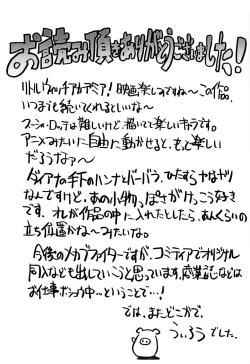 お読み頂きありがとうございました!
リトルウィッチアカデミア!映画楽しみですね〜この作品、
いつまでも続いてくれるといいな〜
スーシィ・ロッテは難しいけど、描いてて楽しいキャラです。
アニメみたいに自由に動かせると、もっと楽しい
だろうなァ〜
ダイアナの手下のハンナとバーバラ、ひたすらヤなヤツ
なんですけど、あの小物っぽさがけっこう好き
です、オレが作品の中に入れたとしたら、あんくらいの
立ち位置かな〜みたいな。
今後のメカブライターですが、コミティアでオリジナル
同人なども出していこうと思っています、商業誌などは
お仕事ボシュウ中…ということで…!
では、またどこかで。
ういろうでした。